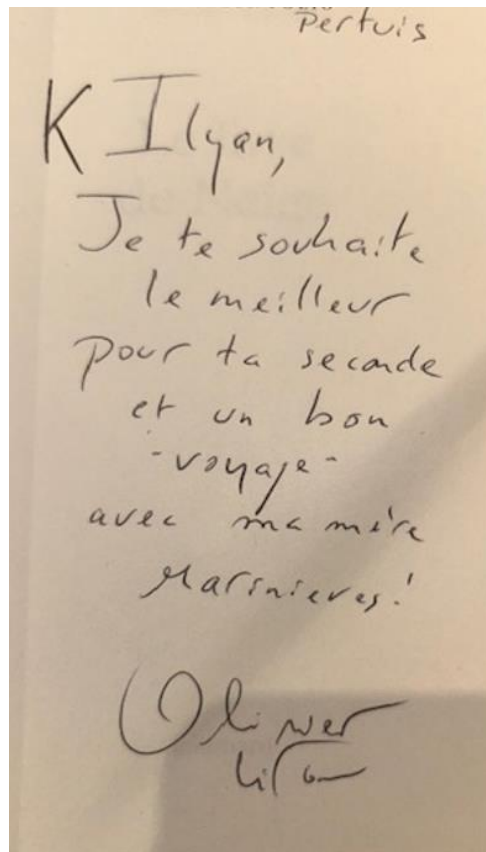 Pertuis
K Ilyan,
Je te souhaite
le meilleur
pour ta seconde
et un bon
-voyage-
avec ma mère
Marinieves!
Olivier
Liron